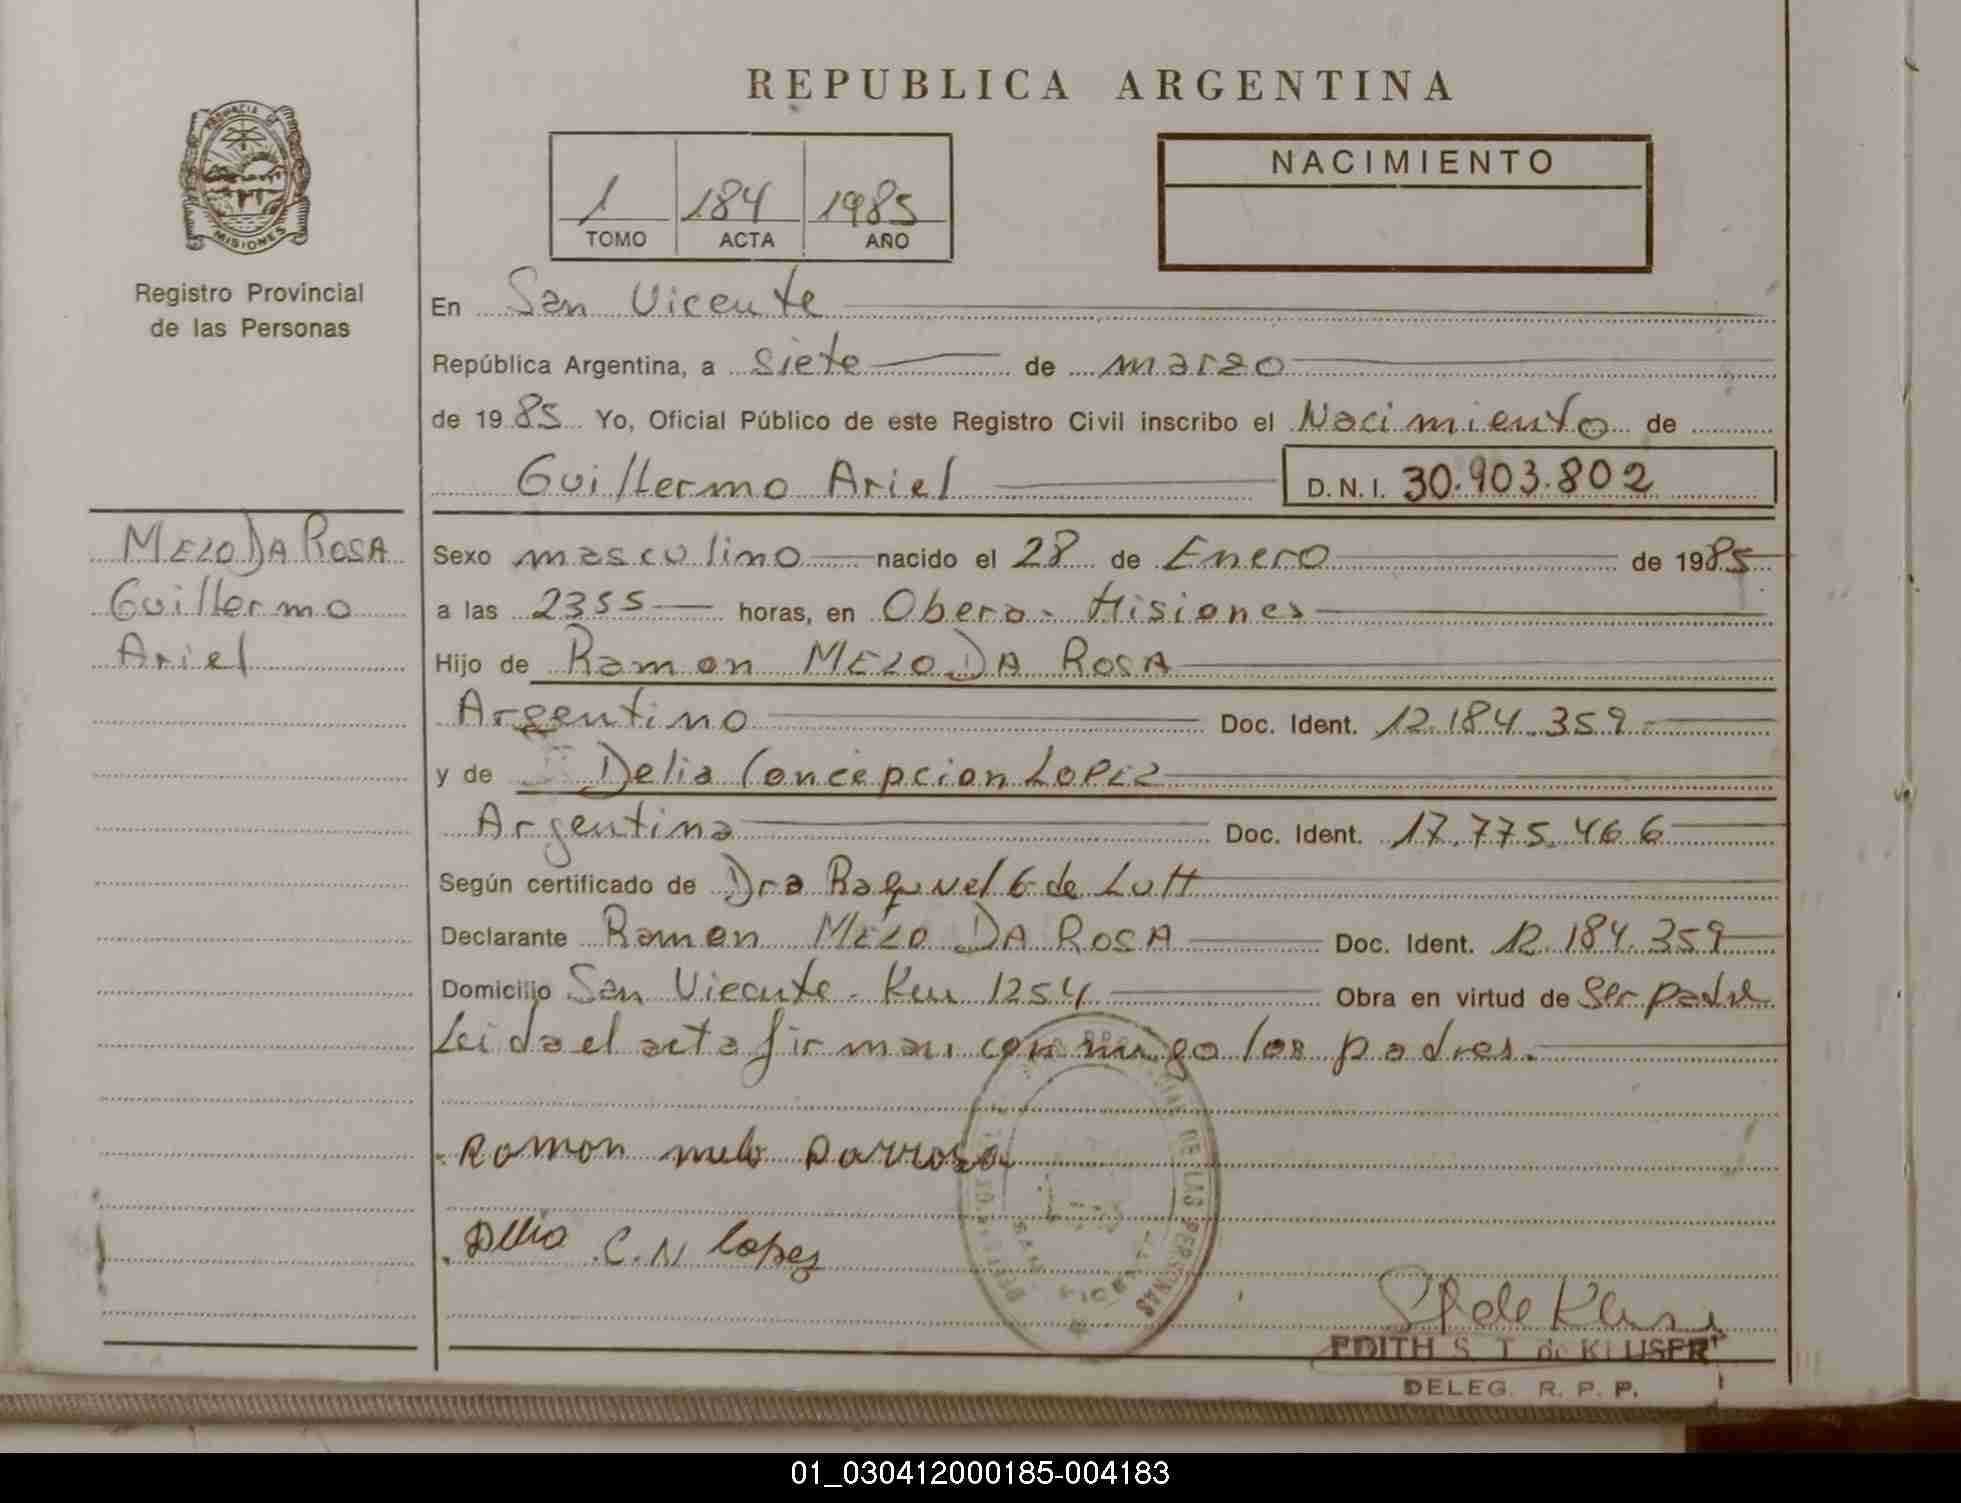 REPUBLICA ARGENTINA
PROVINCIA DE
MISIONES
Registro Provincial
de las Personas
1 184 1985
TOMO ACTA AÑO
NACIMIENTO
En San Vicente
República Argentina, a siete de marzo
de 1985 Yo, Oficial Público de este Registro Civil inscribo el Nacimiento de
Guillermo Ariel D.N.I. 30.903.802
MELO DA ROSA
Guillermo
Ariel
Sexo masculino nacido el 28 de Enero de 1985
a las 2355 horas, en Obera - Misiones
Hijo de Ramon MELO DA ROSA
Argentino Doc. Ident. 12.184.359
y de Delia Concepcion LOPEZ
Argentina Doc. Ident. 17.775.466
Según certificado de Dra Raquel G de Lutt
Declarante Ramon MELO DA ROSA Doc. Ident. 12.184.359
Domicilio San Vicente - Km 1254 Obra en virtud de Ser padre
Leida el acta firman conmigo los padres.
Ramon melo Darrosa
Delia C.N lopez
DE LAS PERSONAS
SAN VICENTE
EDITH S. T. de KLUSER
DELEG. R. P. P.
01_030412000185-004183